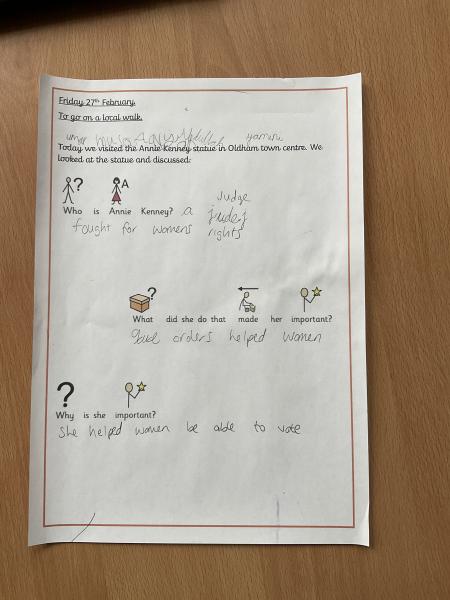 Friday 27th February
To go on a local walk.
umar
Today we visited the Annie Kenney statue in Oldham town centre. We
looked at the statue and discussed:
? A
Judge
Who is Annie Kenney? a
fought for womens rights
?
What did she do that made her important?
gave orders helped women
?
Why is she important?
She helped women be able to vote